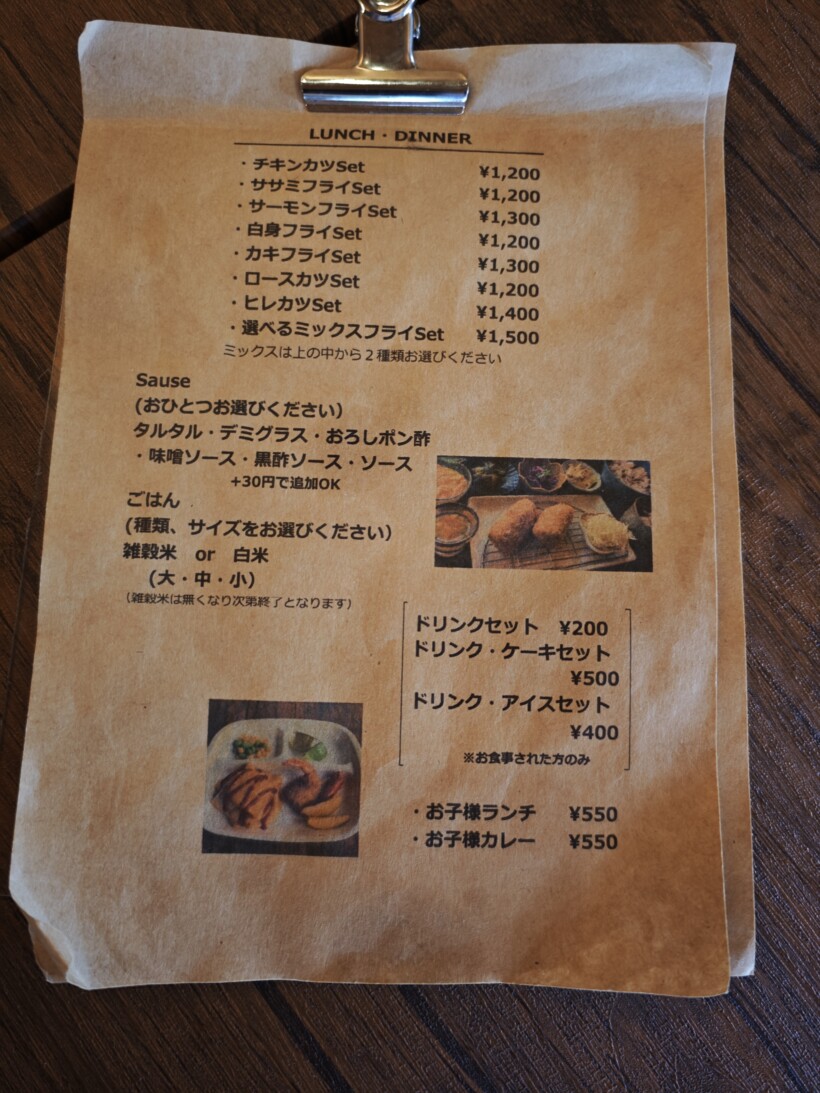 LUNCH・DINNER
・チキンカツSet ¥1,200
・ササミフライSet ¥1,200
・サーモンフライSet ¥1,300
・白身フライSet ¥1,200
・カキフライSet ¥1,300
・ロースカツSet ¥1,200
・ヒレカツSet ¥1,400
・選べるミックスフライSet ¥1,500
ミックスは上の中から２種類お選びください
Sause
(おひとつお選びください)
タルタル・デミグラス・おろしポン酢
・味噌ソース・黒酢ソース・ソース
+30円で追加OK
ごはん
(種類、サイズをお選びください)
雑穀米 or 白米
(大・中・小)
(雑穀米は無くなり次第終了となります)
ドリンクセット ¥200
ドリンク・ケーキセット
¥500
ドリンク・アイスセット
¥400
※お食事された方のみ
・お子様ランチ ¥550
・お子様カレー ¥550